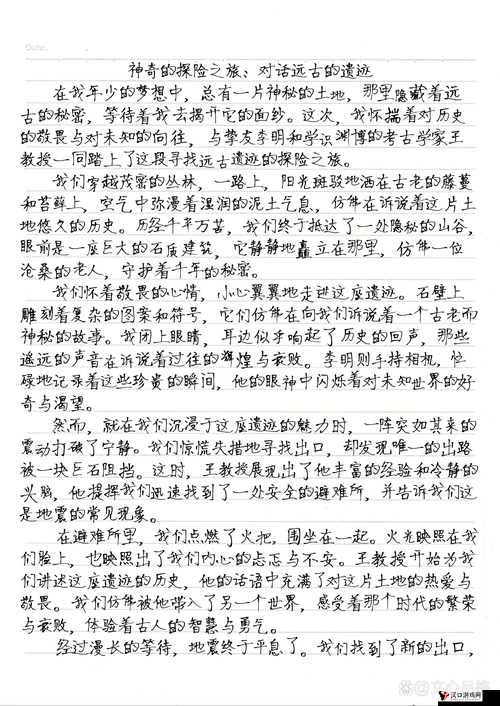 Date.
神奇的探险之旅、对话远古的遗迹
在我年少的梦想中，总有一片神秘的土地，那里隐藏着远
古的秘密，等待着我去揭开它的面纱。这次，我怀揣着对历史
的敬畏与对未知的向往，与挚友李明和学识渊博的考古学家王
教授一同踏上了这段寻找远古遗迹的探险之旅。
我们穿越茂密的丛林，一路上，阳光斑驳地洒在古老的藤蔓
和苔藓上，空气中弥漫着湿润的泥土气息，仿佛在诉说着这片土
地悠久的历史。历经千辛万苦，我们终于抵达了一处隐秘的山谷，
眼前是一座巨大的石质建筑，它静静地矗立在那里，仿佛一位
沧桑的老人，守护着千年的秘密。
我们怀着敬畏的心情，小心翼翼地走进这座遗迹。石壁上
雕刻着复杂的图案和符号，它们仿佛在向我们诉说着一个古老而
神秘的故事。我闭上眼睛，耳边似乎响起了历史的回声，那些
遥远的声音在诉说着过往的辉煌与衰败。李明则手持相机，忙
碌地记录着这些珍贵的瞬间，他的眼神中闪烁着对未知世界的好
奇与渴望。
然而，就在我们沉浸于这座遗迹的魅力时，一阵突如其来的
震动打破了宁静。我们惊慌失措地寻找出口，却发现唯一的出路
被一块巨石阻挡。这时，王教授展现出了他丰富的经验和冷静的
头脑，他提醒我们迅速找到了一处安全的避难所，并告诉我们这
是地震的常见现象。
在避难所里，我们点燃了火把，围坐在一起。火光映照在我
们脸上，也映照出了我们内心的忐忑与不安。王教授开始为我
们讲述这座遗迹的历史，他的话语中充满了对这片土地的热爱与
敬畏。我们仿佛被他带入了另一个世界，感受着那个时代的繁荣
与衰败，体验着古人的智慧与勇气。
经过漫长的等待，地震终于平息了。我们找到了新的出口，
汉口游戏网